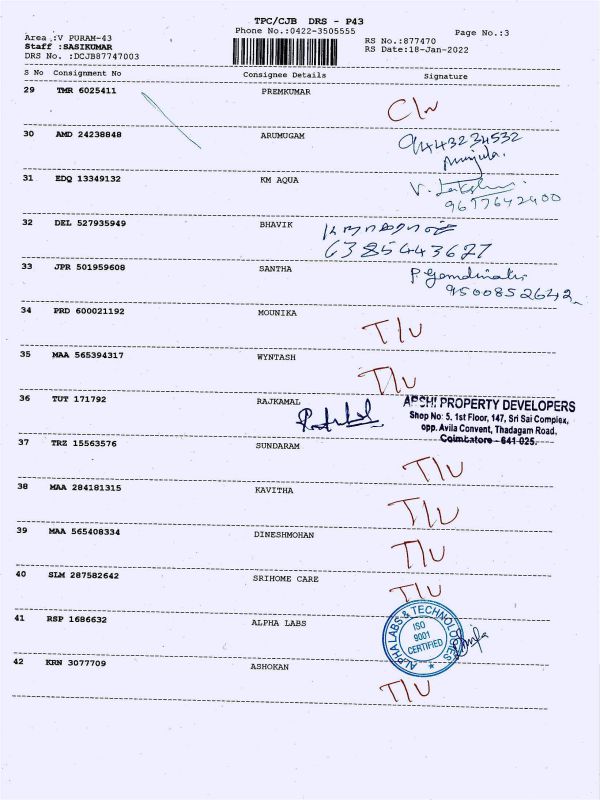 TPC/CJB DRS - P43
Area :V PURAM-43 Phone No.:0422-3505555 Page No.:3
Staff :SASIKUMAR RS No.:877470
DRS No. :DCJB87747003 RS Date:18-Jan-2022
S No Consignment No Consignee Details Signature
29 TMR 6025411 PREMKUMAR
30 AMD 24238848 ARUMUGAM 9443234532
31 EDQ 13349132 KM AQUA V.
9677642400
32 DEL 527935949 BHAVIK
6385443627
33 JPR 501959608 SANTHA
9500852642
34 PRD 600021192 MOUNIKA
T/U
35 MAA 565394317 WYNTASH
T/U
36 TUT 171792 RAJKAMAL
PROPERTY DEVELOPERS
Shop No: 5, 1st Floor, 147, Sri Sai Complex,
opp. Avila Convent, Thadagam Road,
Coimbatore - 641 025.
37 TRZ 15563576 SUNDARAM
T/U
38 MAA 284181315 KAVITHA
T/U
39 MAA 565408334 DINESHMOHAN
T/U
40 SLM 287582642 SRIHOME CARE
T/U
41 RSP 1686632 ALPHA LABS
ALPHA LABS & TECHNOLOGIES
ISO
9001
CERTIFIED
42 KRN 3077709 ASHOKAN
T/U